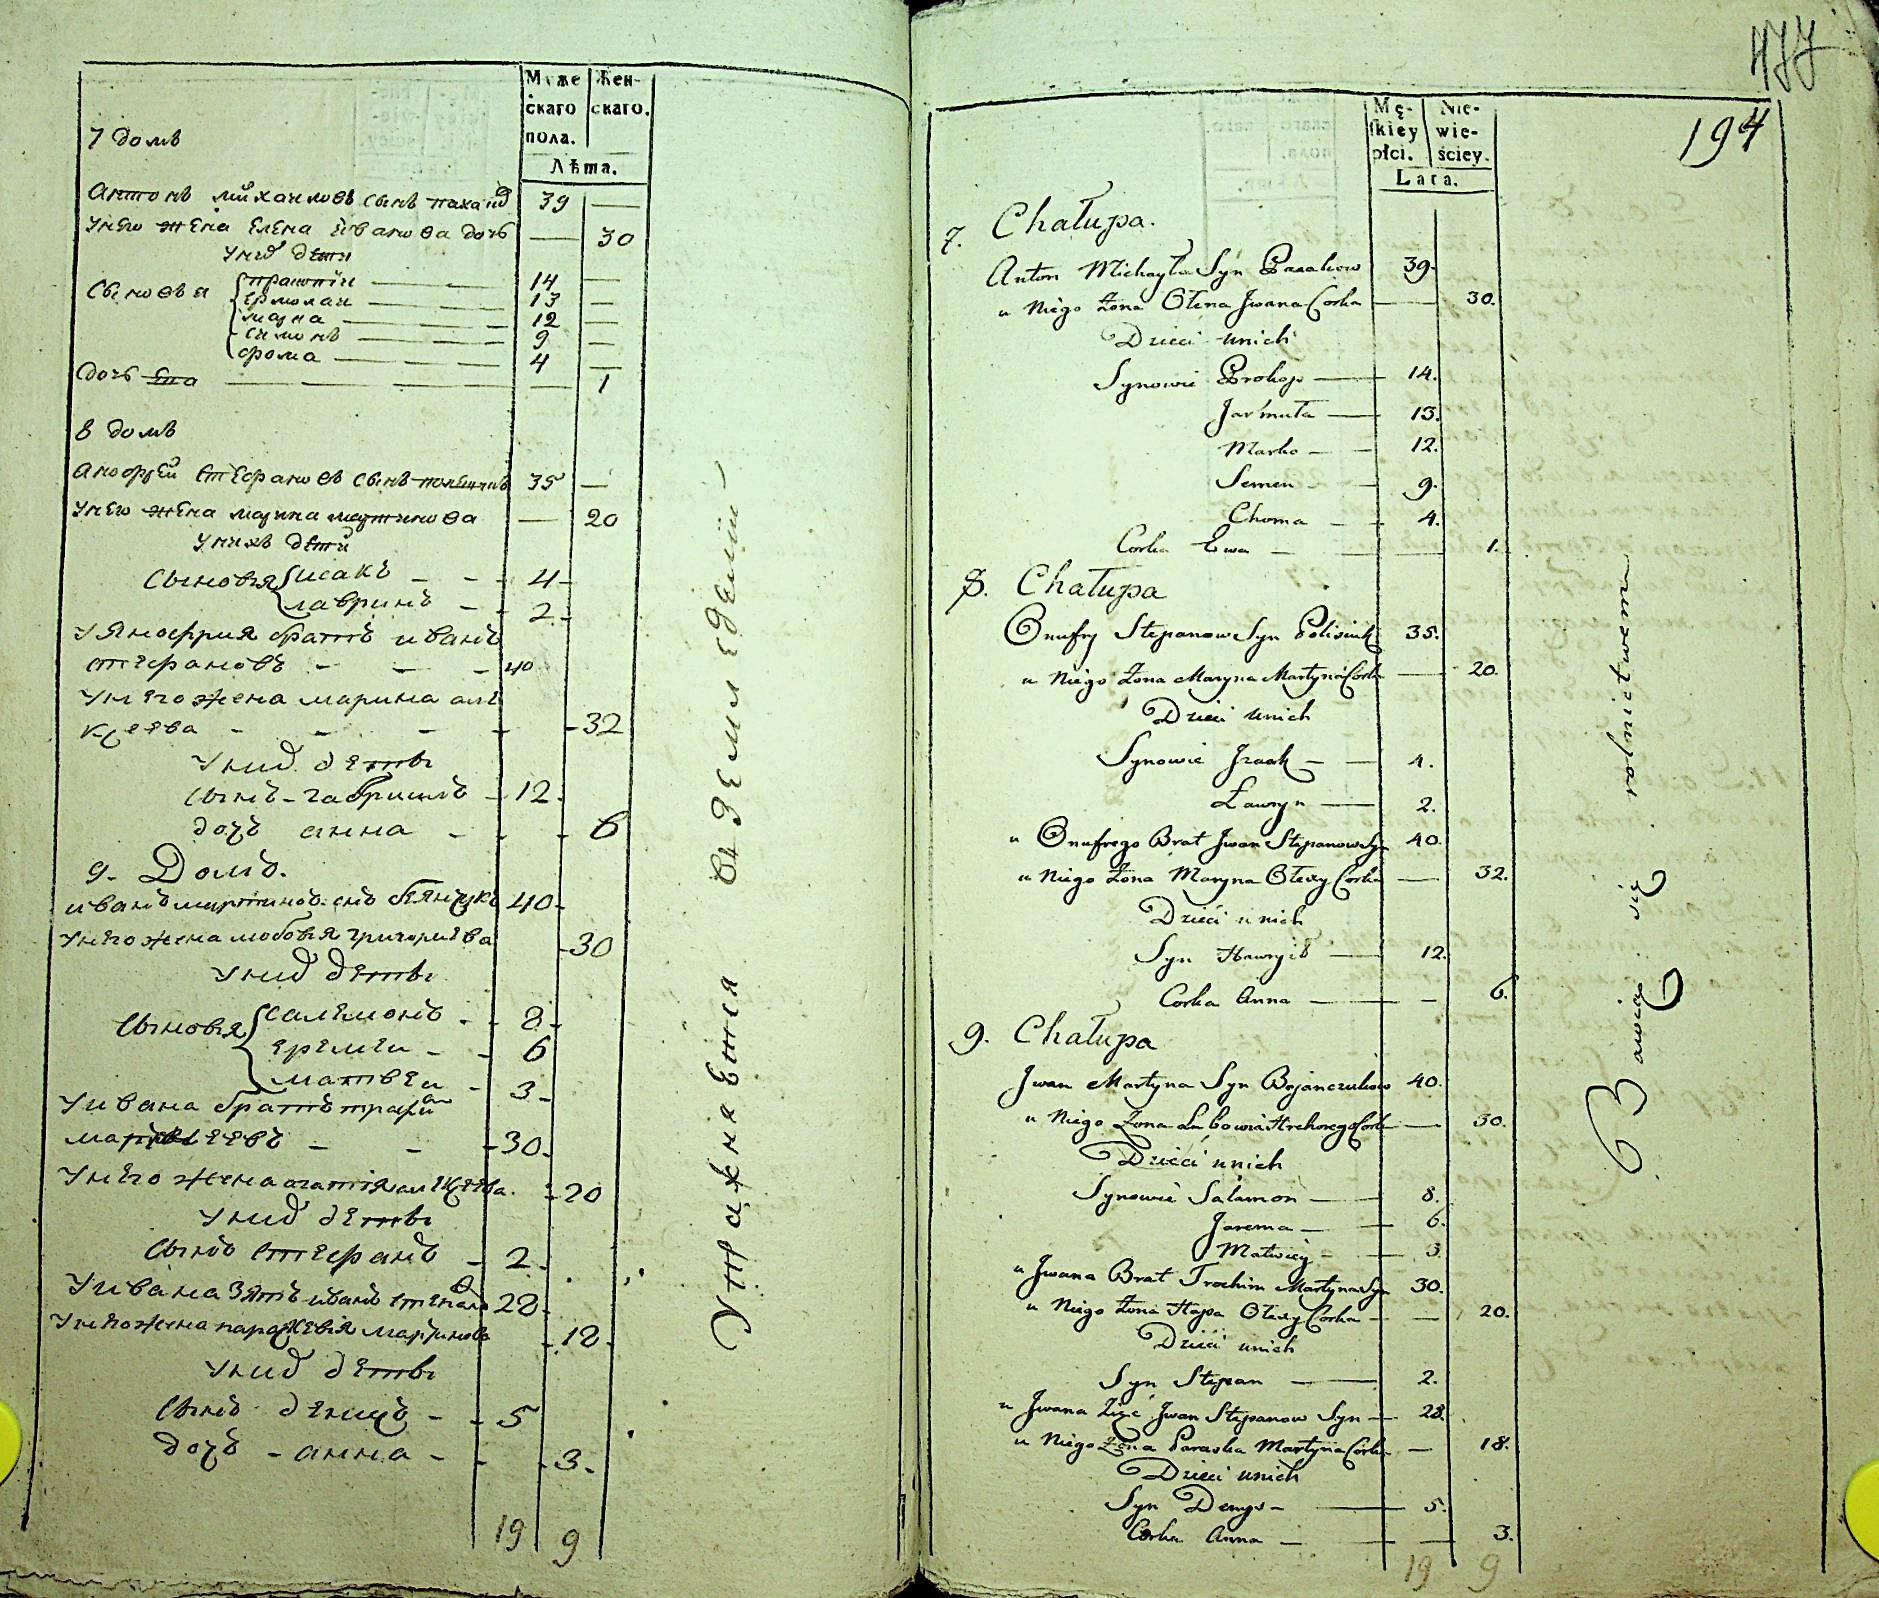 Муже Жен-
скаго скаго.
пола.
Лѣта.
7 домъ
антонъ михаиловъ сынъ 39 —
унего жена Елена иванова дочь — 30
уних дети
сыновья прокопи — 14 —
ермолаи — 13 —
марка — 12 —
симонъ — 9 —
фома — 4 —
дочь Ева — — 1
8 домъ
аноофрей стефановъ сынъ 35 —
унего жена марина мартинова — 20
унихъ дети
сыновья исакъ - - - 4 -
лавринъ - - 2 -
у яноффрия братъ иванъ
стефановъ - - - 40
унего жена марина але
ксеева - - - - 32
уних дети
сынъ - гаврилъ - 12 -
дочь анна - - - 6
9. Домъ.
иванъ мартиновъ снъ 40 -
унего жена любовья григориева - 30
уних дети
сыновья салемонъ - - 8 -
еремеи - - 6
матвеи - 3 -
у ивана братъ
- - - 30 -
унего жена агатия алексеева. - 20
уних дети
сынъ стефанъ - 2 -
у ивана зять иванъ степано в 28 -
унего жена параскевия мартинова - 18 -
уних дети
сынъ денисъ - - 5
дочь - анна - - - 3 -
19 9
Упражняется въ земледелии —
477
194
Mę- Nie-
skiey wie-
płci. ściey.
Lata.
7. Chałupa.
Anton Michayła Syn 39.
u Niego Żona Ołena Jwana Corka — 30.
Dzieci unich
Synowie Prokop — 14.
Jarmuła — 13.
Marko — - 12.
Semen - 9.
Choma - - 4.
Corka Ewa - — 1.
8. Chałupa
Onufry Stepanow Syn Polisiuk 35.
u Niego Żona Maryna Martyna Corka — 20.
Dzieci unich
Synowie Jzaak - — 4.
Ławryn — 2.
u Onufrego Brat Jwan Stepanow Syn 40.
u Niego Żona Maryna Ołexy Corka — 32.
Dzieci u nich
Syn Hawryił — 12.
Corka Anna — - 6.
9. Chałupa
Jwan Martyna Syn Bojanczukow 40.
u Niego Żona Lubowia Hrehorego Corka — 30.
Dzieci unich
Synowie Salamon — 8.
Jarema — - 6.
Matwiey - — 3.
u Jwana Brat Trochim Martyna Syn 30.
u Niego Żona Hapa Ołexy Corka - — 20.
Dzieci unich
Syn Stepan — 2.
u Jwana Zięć Jwan Stepanow Syn — 28.
u Niego Żona Paraska Martyna Corka — 18.
Dzieci unich
Syn Denys - — 5.
Corka Anna - — 3.
19 9
Bawią się rolnictwem